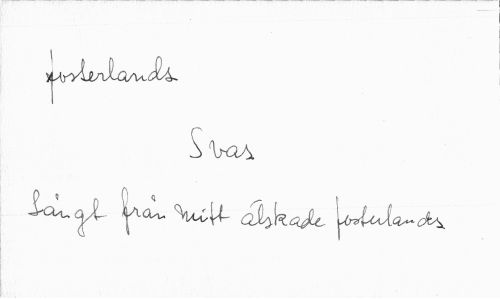 fosterlands
Svas
Långt från mitt älskade fosterlands